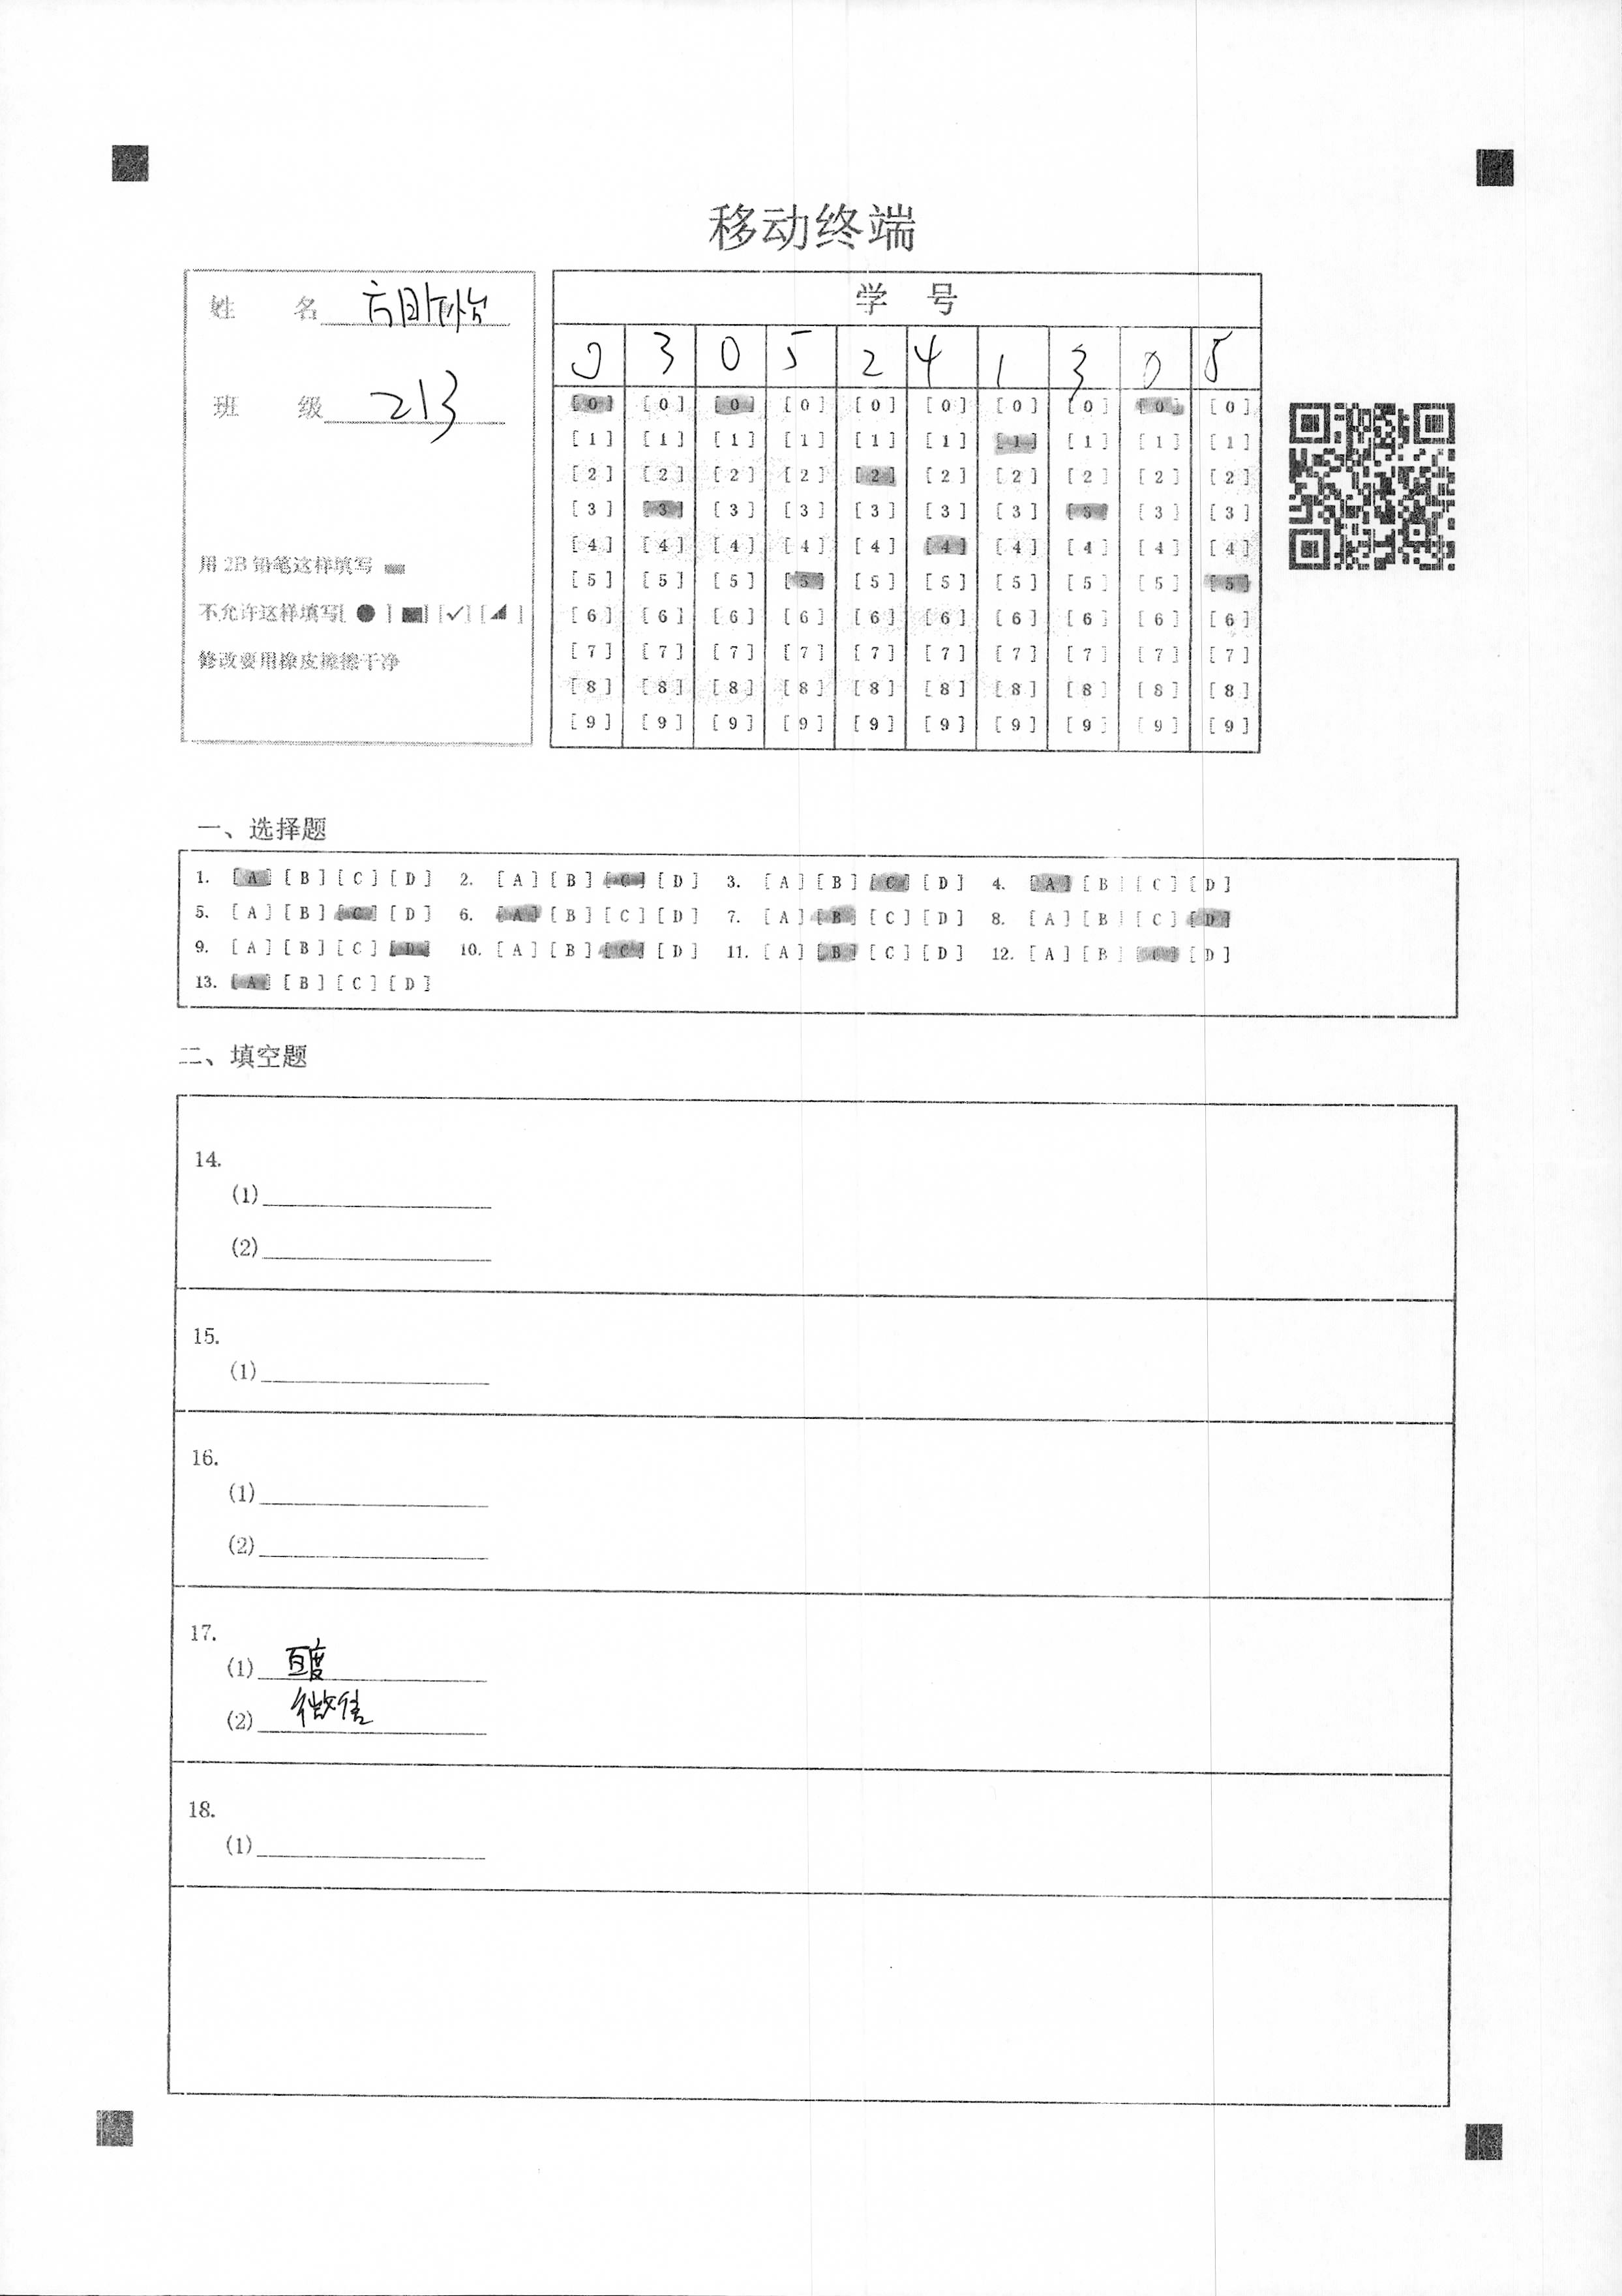 移动终端
姓 名
班 级 213
用 2B 铅笔这样填写
不允许这样填写[ ● ] [■] [✓] [◢ ]
修改要用橡皮擦擦干净
学 号
0 3 0 5 2 4 1 3 0 5
[0] [0] [0] [0] [0] [0] [0] [0] [0] [0]
[1] [1] [1] [1] [1] [1] [1] [1] [1] [1]
[2] [2] [2] [2] [2] [2] [2] [2] [2] [2]
[3] [3] [3] [3] [3] [3] [3] [3] [3] [3]
[4] [4] [4] [4] [4] [4] [4] [4] [4] [4]
[5] [5] [5] [5] [5] [5] [5] [5] [5] [5]
[6] [6] [6] [6] [6] [6] [6] [6] [6] [6]
[7] [7] [7] [7] [7] [7] [7] [7] [7] [7]
[8] [8] [8] [8] [8] [8] [8] [8] [8] [8]
[9] [9] [9] [9] [9] [9] [9] [9] [9] [9]
一、选择题
1. [A] [B] [C] [D] 2. [A] [B] [C] [D] 3. [A] [B] [C] [D] 4. [A] [B] [C] [D]
5. [A] [B] [C] [D] 6. [A] [B] [C] [D] 7. [A] [B] [C] [D] 8. [A] [B] [C] [D]
9. [A] [B] [C] [D] 10. [A] [B] [C] [D] 11. [A] [B] [C] [D] 12. [A] [B] [C] [D]
13. [A] [B] [C] [D]
二、填空题
14.
(1)
(2)
15.
(1)
16.
(1)
(2)
17.
(1) 百度
(2) 微信
18.
(1)